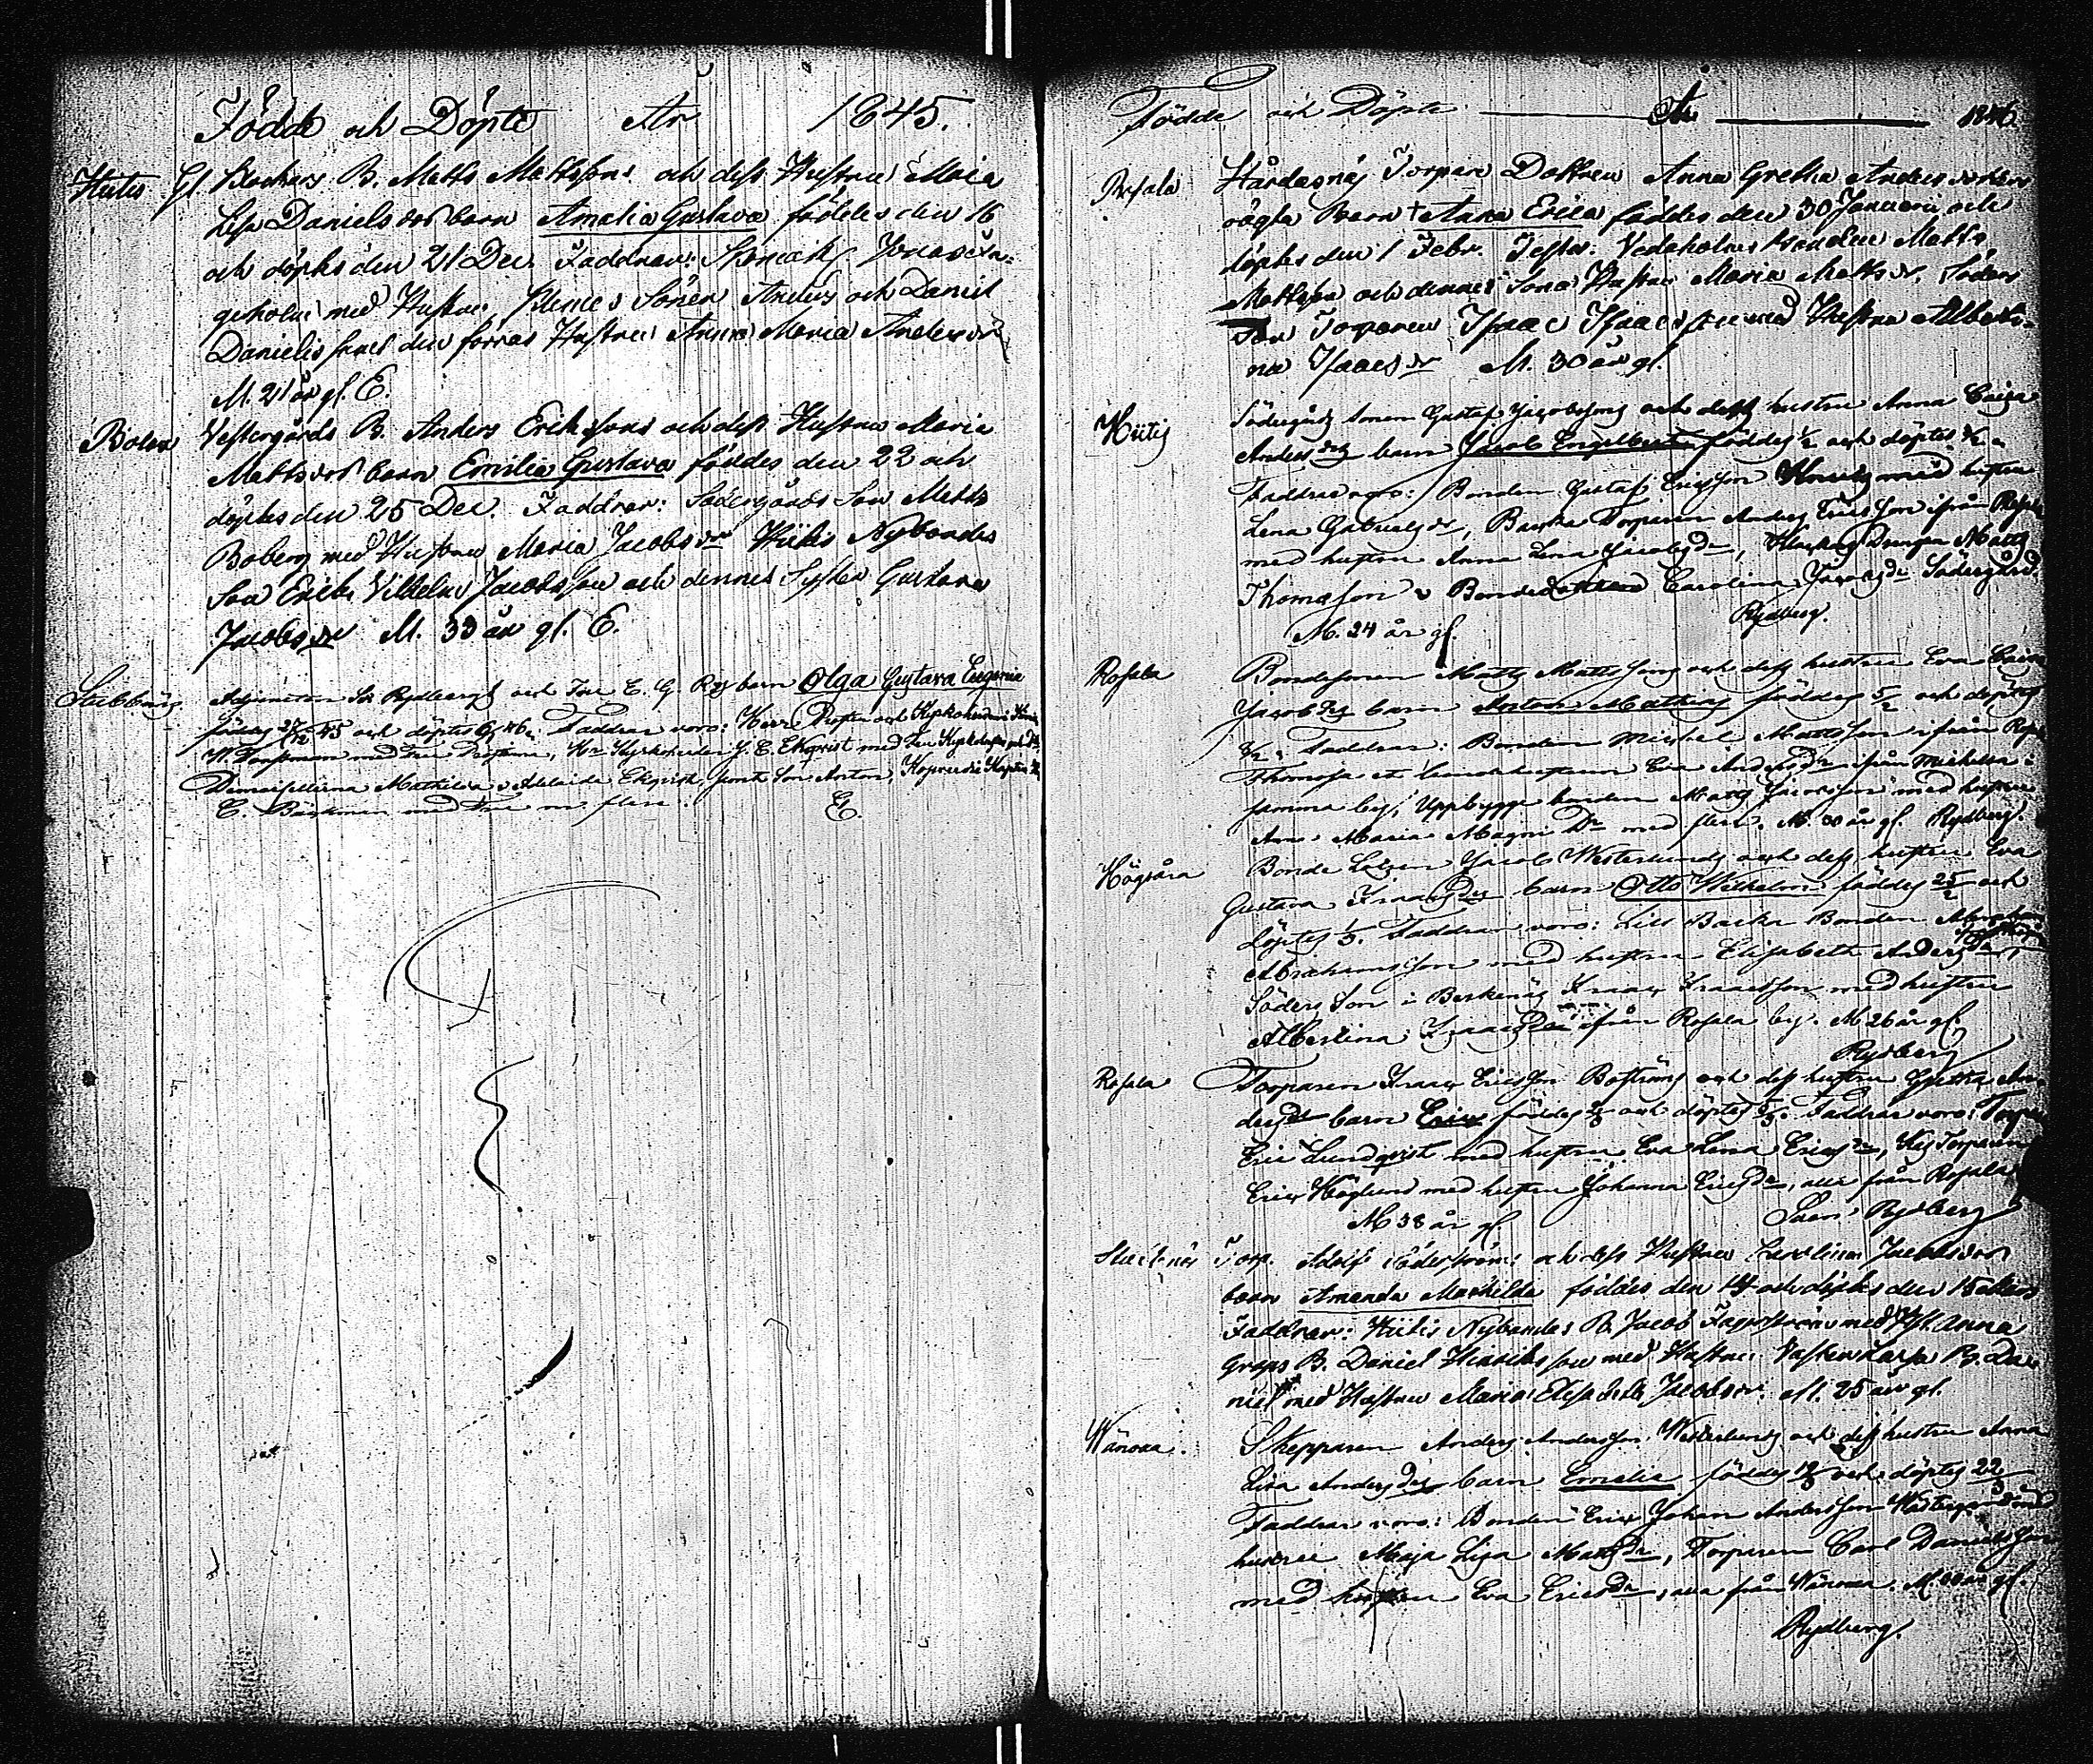 Födde och Döpte År 1845.
Hitis Gl. Klockars B. Matts Mattssons och dess Hustru Maria
Lisa Daniels dors barn Amalia Gustava föddes den 16
och döptes den 21 Dec. Faddrar: Jonas
med Hustru, Söner Anders och Daniel
Danielssöner den förras Hustru Anna Maria Andersdr
M. 21 år gl. E.
Bolax Vestergårds B. Anders Erikssons och dess Hustru Maria
Mattsdors barn Emilia Gustava föddes den 22 och
döptes den 25 Dec. Faddrar: Södergårds Son Matts
Boberg med Hustru Maria Jacobsdr Hitis Nybondes
Son Erik Vilhelm Jacobsson och dennes Syster Gustava
Jacobsdr M. 33 år gl. E.
Adjuncten Rydbergs och Fru E. G. barn Olga Gustava Eugenia
föddes 27/12 45 och döptes 46. Faddrar voro: Herr Prosten och Kyrkoherden
W. med Fru Prostinna, Hr Kyrkoherden J. E. Ekqvist med Fru
Demoisellerna Mathilda o Adelaide Ekqvist samt Son Anton,
C. Bäckman med Fru m. flera. E.
Födde och Döpte År 1846
Rosala Hårdasnäs Torpare Dottren Anna Gretha Andersdotters
oägta Barn † Anna Erica föddes den 30 Januarii och
döptes den 1 Febr. Test: Bonden Matts
Mattsson och dennes Sons Hustru Maria Mattsdr, Söders
Son Torparen Isaac Isaacsson med Hustru Alberti-
na Isaacsdr M. 30 år gl.
Hitis Södergårds Sonen Gustaf Jacobssons och dess hustru Anna Caisa
Andersdrs barn Jacob Engelbert föddes 1/2 och döptes
Faddrar voro: Bonden Gustaf Ericsson med hustru
Lena Gabrielsdr, Backa Torparen Anders Ericsson ifrån Rosala
med hustru Anna Lena Jacobsdr, Drengen Matts
Thomasson o Bondedottren Carolina Jacobsdr Södergård.
M. 24 år gl. Rydberg.
Rosala Bondesonen Matts Mattssons och dess hustru Eva Caisa
Jacobdrs barn Anton Mathias föddes 5/2 och döptes
8/2. Faddrar: Bonden Michel Mattsson ifrån Rosala
Thomasson Eva Andersdr ifrån
samma by, Uppbygge bonden Matts Jacobsson med hustru
Maria Magni Dr med flera. M. 30 år gl. Rydberg.
Högsåra Bonde Jacob Westerlunds och dess hustru Eva
Gustava Isaacsdrs barn Otto Wilhelm föddes 25/2 och
döptes 1/3. Faddrar voro: Lill Backa Bonden Abraham
Abrahamsson med hustru Elisabeth Andersdr,
Söders Son i Isaac Isaacsson med hustru
Albertina Isaacsdr ifrån Rosala by. M 26 år gl.
Rydberg
Rosala Torparen Isaac Ericsson Boströms och dess hustru Gretha An-
dersdrs barn Erica föddes och döptes. Faddrar voro: Torparen
Eric Lundqvist med hustru Eva Lena Ericsdr, Torparen
Eric Höglund med hustru Johanna Ericsdr, alla från Rosala
M 38 år gl. Sven Rydberg
Torp. Adolf Söderströms och dess Hustru Carolina Jacobsdors
barn Amanda Mathilda föddes den 14 och döptes den 15 Mars
Faddrar: Hitis Nybondas B. Jacob Fagerström med Hst. Anna
Grops B. Daniel Hinriksson med Hustru B. Da-
niel med Hustru Maria Elisabeth Jacobsdr. M. 25 år gl.
Wänoxa. Skepparen Anders Andersson Westerlunds och dess hustru Anna
Lisa Andersdrs barn Emelie föddes 19/3 och döptes 22/3
Faddrar voro: Bonden Eric Johan Andersson Westergård med
hustru Maja Lisa Mattsdr, Torparen Carl Danielsson
med hustru Eva Ericsdr, alla från Wänoxa. M. år gl.
Rydberg.